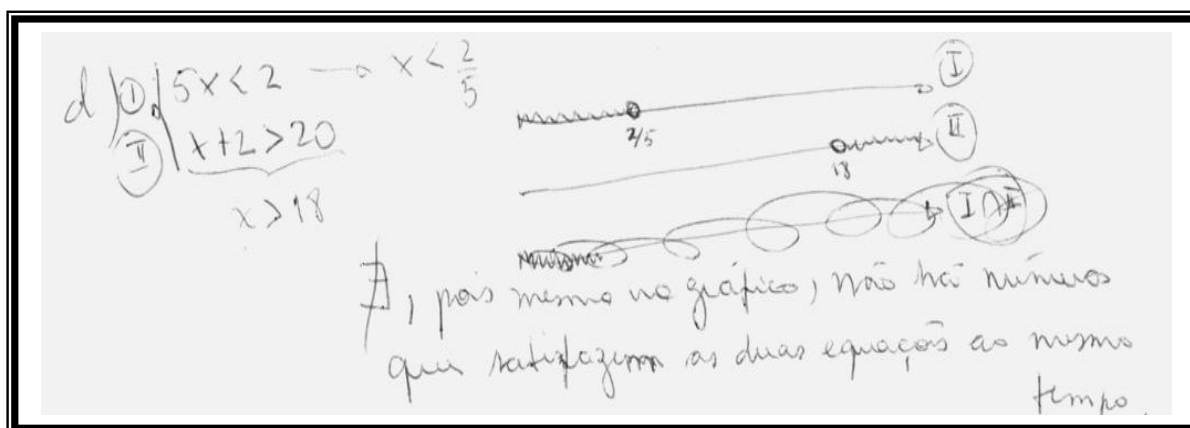 d) I 5x < 2 → x < 2/5
II x+2 > 20
x > 18
I
2/5
II
18
I ∩ II
∄, pois mesmo no gráfico, não há números
que satisfazem as duas equações ao mesmo
tempo.